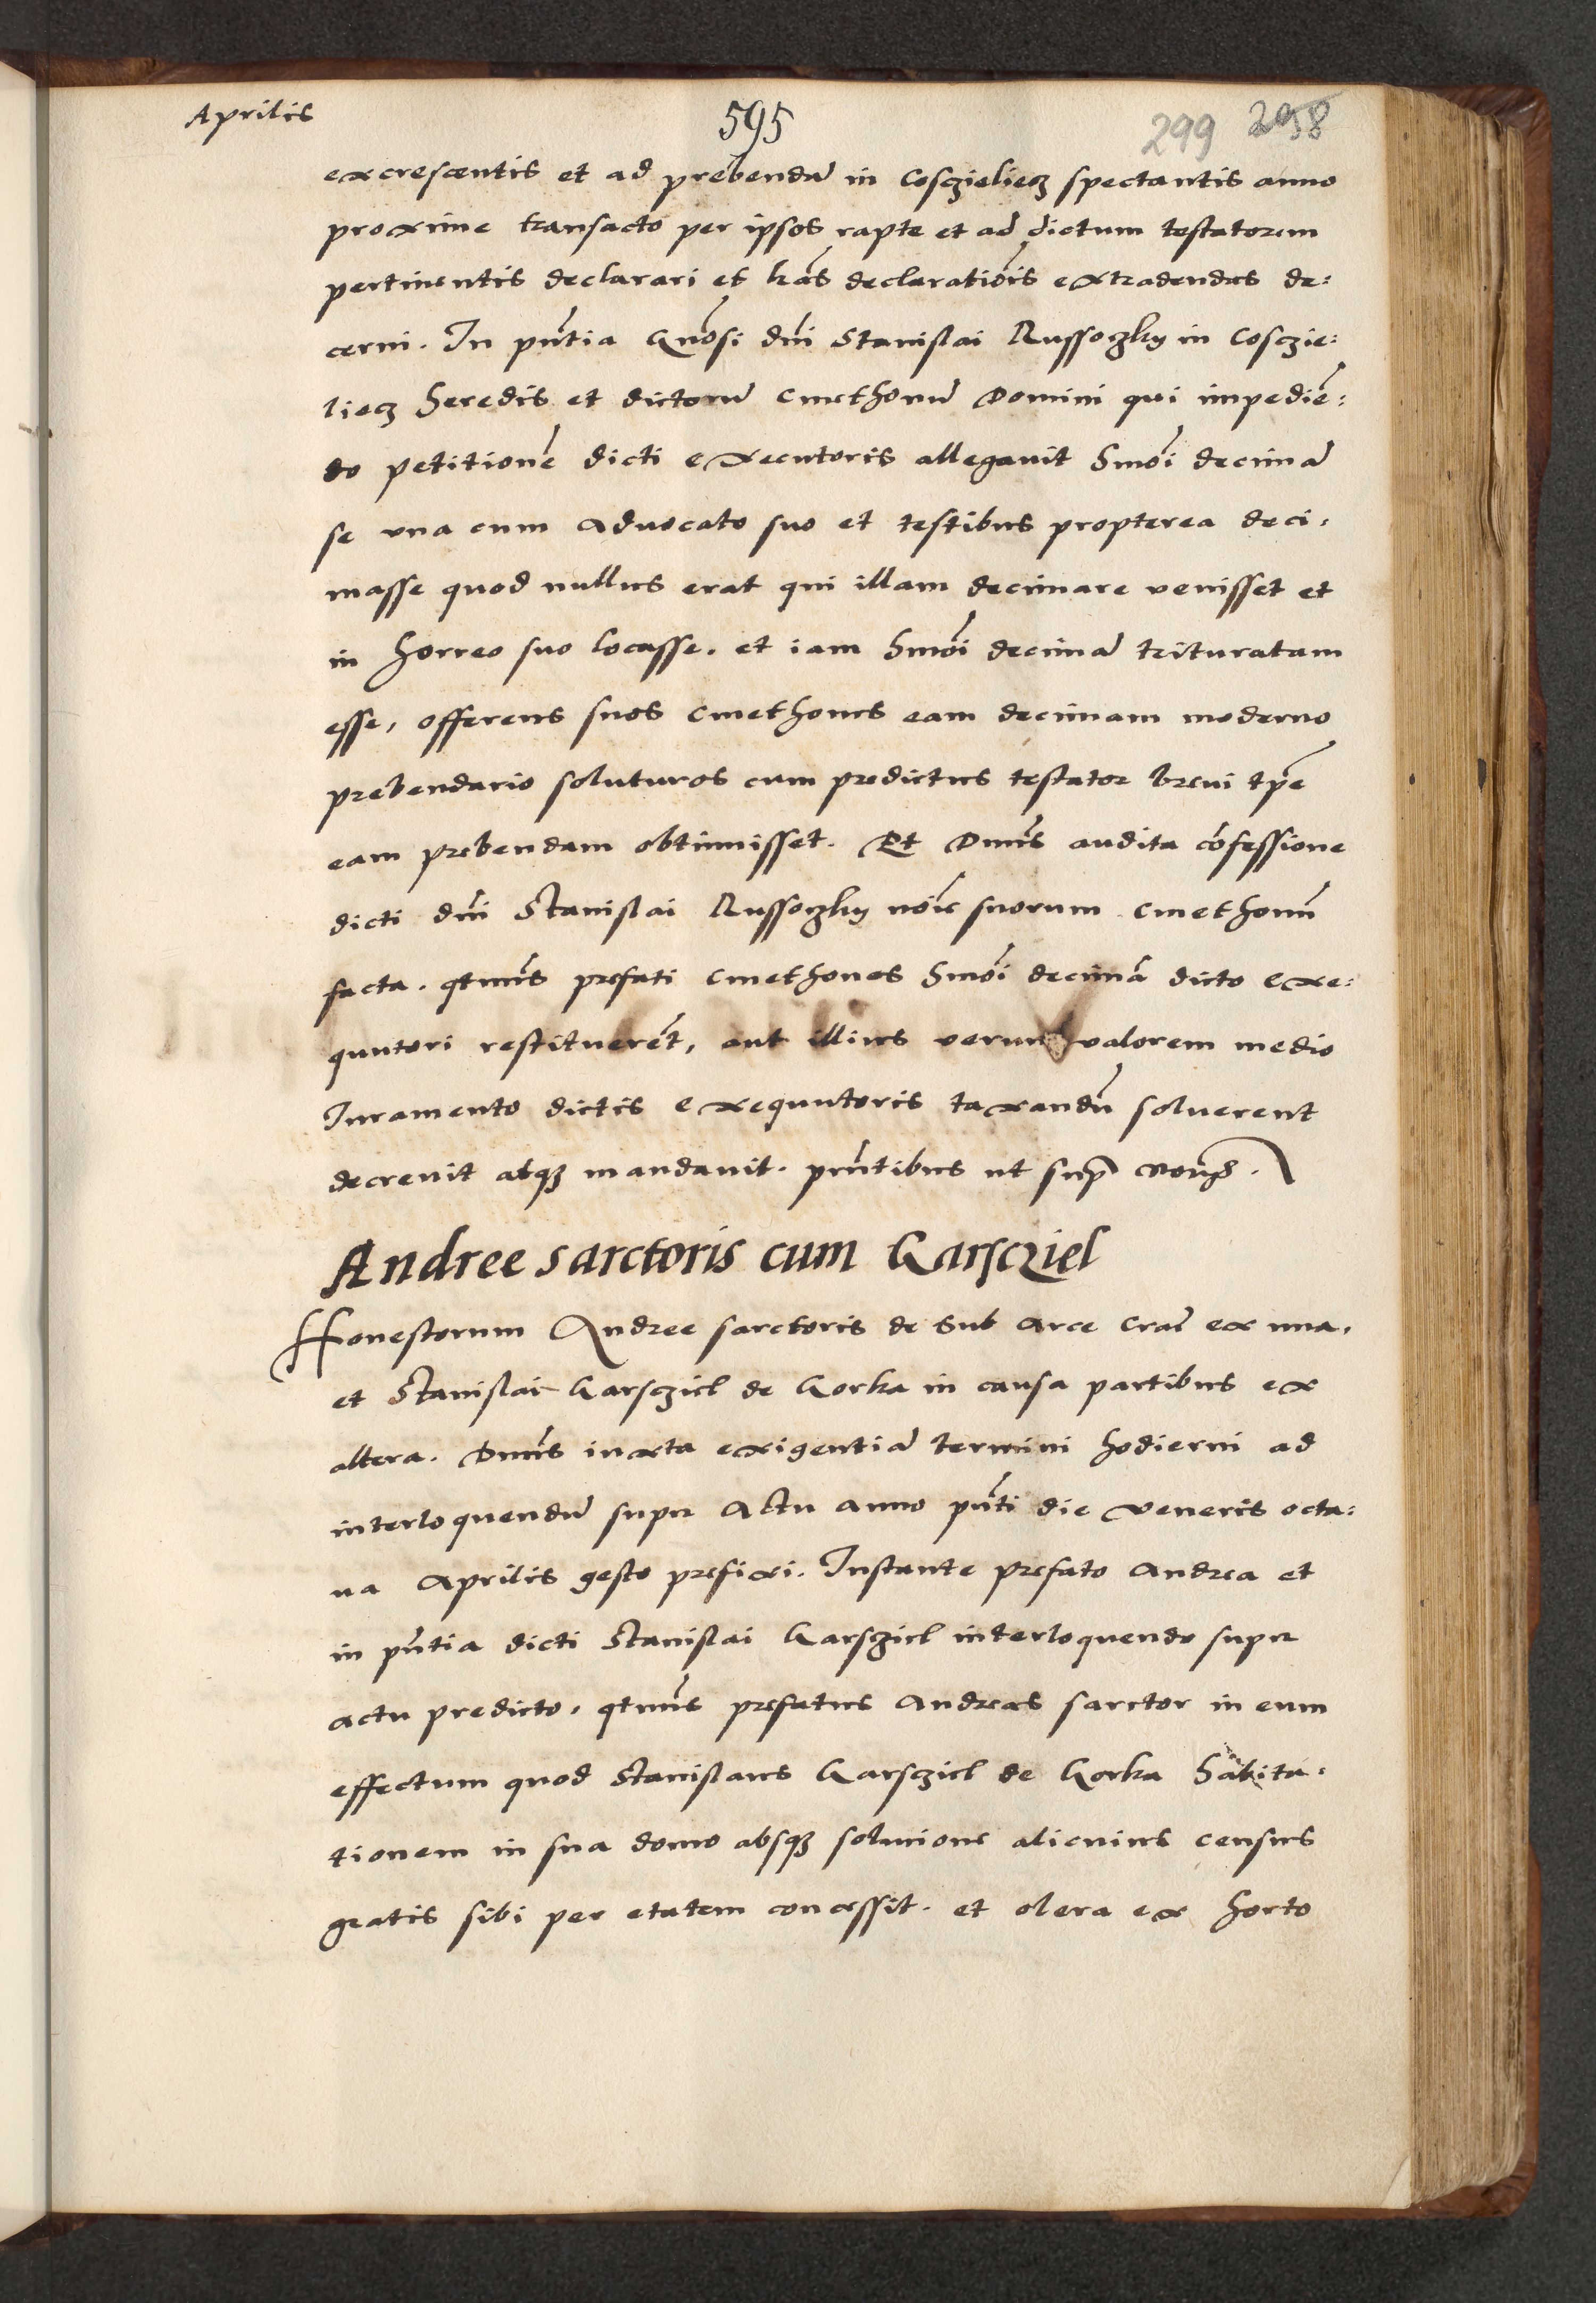 Aprilis
595
299 298
excrescentis et ad prebendā in Cosczielecz spectantis anno
proxime transacto per ipsos rapte et ad dictum testatorem
pertinentis declarari et lr̄as declaratiōis extradendas de:
cerni. In pn̄tia Gn̄osi dn̄i Stanislai Russoczky in Cosczie:
liecz heredis et dictorū Cmethonū Domini qui impediē:
do petitionē dicti executoris allegauit hmōi decimā
se vna cum Aduocato suo et testibus propterea deci:
masse quod nullus erat qui illam decimare venisset et
in horreo suo locasse. et iam hmōi decimā trituratam
esse, offerens suos Cmethones eam decimam moderno
prebendario soluturos cum predictus testator breui tp̄e
eam prebendam obtinuisset. Et Dn̄us audita cōfessione
dicti dn̄i Stanislai Russoczky nōie suorum Cmethonū
facta. qten̄us prefati Cmethones hmōi decimā dicto exe:
quutori restituerēt, aut illius verum valorem medio
Iuramento dictis exequutoris taxandū soluerent
decreuit atqꝫ mandauit. pn̄tibus ut sup̄
Andree sarctoris cum Garscziel
Honestorum Andree sarctoris de sub Arce Crac̄ ex una,
et Stanislai Garscziel de Gorka in causa partibus ex
altera. Dn̄us iuxta exigentiā termini hodierni ad
interloquendū super Actu anno pn̄ti die Veneris octa:
ua Aprilis gesto prefixi. Instante prefato Andrea et
in pn̄tia dicti Stanislai Garscziel interloquendo super
actu predicto, qten̄us prefatus Andreas sarctor in eum
effectum quod Stanislaus Garscziel de Gorka habita:
tionem in sua domo absqꝫ solucione alicuius census
gratis sibi per etatem concessit. et olera ex horto